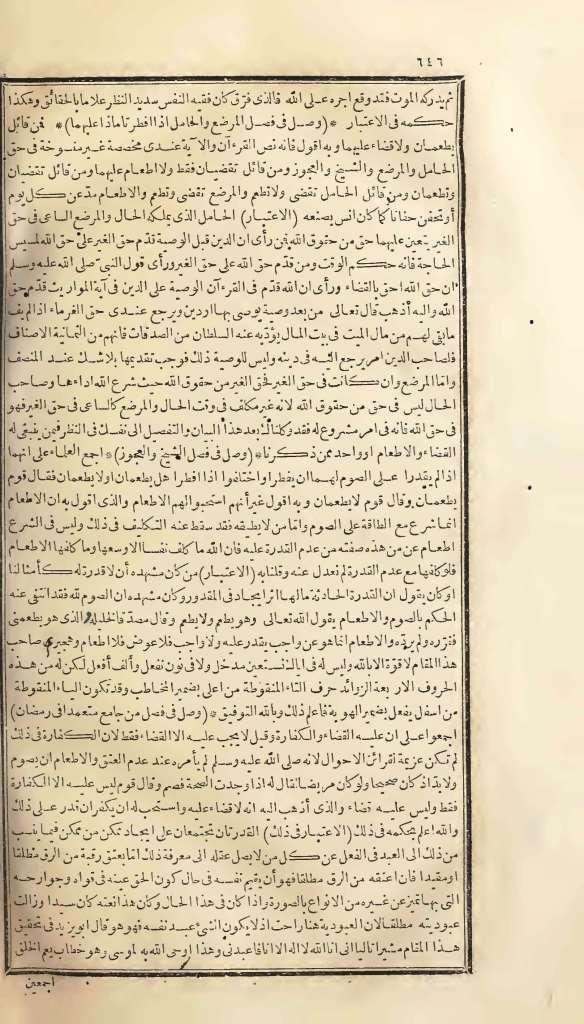 ٦٤٦
ثم يدركه الموت فقد وقع اجره على الله فالذى فرّق كان فقيه النفس سديد النظر علاما بالحقائق وهكذا
حكمه فى الاعتبار * (وصل فى فصل المرضع والحامل اذا افطرتا ماذا عليهما) * فن قائل
يطعمان ولا قضاء عليهما وبه اقول فانه نص القرءآن والآية عندى مخصصة غير منسوخة فى حق
الحامل والمرضع والشيخ والعجوز ومن قائل تقضيان فقط ولا اطعام عليهما ومن قائل تقضيان
وتطعمان ومن قائل الحامل تقضى ولا تطعم والمرضع تقضى وتطعم والاطعام مدّ عن كل يوم
أو تحفن حفانا كما كان انس يصنعه (الاعتبار) الحامل الذى يملكه الحال والمرضع الساعى فى حق
الغير يتعين عليهما حق من حقوق الله فمن رأى ان الدين قبل الوصية قدّم حق الغير على حق الله لمسيس
الحاجة فانه حكم الوقت ومن قدّم حق الله على حق الغير ورأى قول النبىّ صلى الله عليه وسلم
ان حق الله احق بالقضاء ورأى ان الله قدّم فى القرءآن الوصية على الدين فى آية المواريث قدّم حق
الله واليه أذهب قال تعالى من بعد وصية يوصى بها او دين ويرجع عندى حق الغرماء اذا لم يف
مابقى لهم من مال الميت فى بيت المال يؤدّيه عنه السلطان من الصدقات فانهم من الثمانية الاصناف
فلصاحب الدين امر يرجع اليه فى دينه وليس للوصية ذلك فوجب تقديمها بلا شك عند المنصف
وامّا المرضع وان كانت فى حق الغير فحق الغير من حقوق الله حيث شرع الله اداءها وصاحب
الحال ليس فى حق من حقوق الله لانه غير مكلف فى وقت الحال والمرضع كالساعى فى حق الغير فهو
فى حق الله فانه فى امر مشروع له فقد وكلناك بعد هذا البيان والتفصل الى نفسك فى النظر فيمن ينبغى له
القضاء والاطعام او واحد ممن ذكرنا * (وصل فى فصل الشيخ والعجوز) * اجمع العلماء على انهما
اذا لم يقدرا على الصوم لهما ان يفطرا واختلفوا اذا افطرا هل يطعمان اولا يطعمان فقال قوم
يطعمان وقال قوم لا يطعمان وبه اقول غير أنهم استحبوا لهم الاطعام والذى اقول به ان الاطعام
انما شرع مع الطاقة على الصوم وامّا من لا يطيقه فقد سقط عنه التكليف فى ذلك وليس فى الشرع
اطعام عن من هذه صفته من عدم القدرة عليه فان الله ما كلف نفسا الا وسعها وما كلفها الاطعام
فلو كلفها مع عدم القدرة لم نعدل عنه وقلنا به (الاعتبار) من كان مشهده أن لا قدرة له كأمثالنا
او كان يقول ان القدرة الحادثة مالها اثر ايجاد فى المقدور وكان مشهده ان الصوم لله فقد انتفى عنه
الحكم بالصوم والاطعام يقول الله تعالى وهو يطعم ولا يطعم وقال مصدّقا لخليله والذى هو يطعمنى
فقرّره ولم يردّه والاطعام انما هو عن واجب يقدر عليه ولا واجب فلا عوض فلا اطعام وهجيرى صاحب
هذا المقام لا قوّة الا بالله وليس له فى اياك نستعين مدخل ولا فى نون نفعل وألف أفعل لكن له من هذه
الحروف الاربعة الزوائد حرف التاء المنقوطة من اعلى بضمير المخاطب وقد تكون الياء المنقوطة
من اسفل يفعل بضمير الهوية فاعلم ذلك وبالله التوفيق * (وصل فى فصل من جامع متعمدا فى رمضان)
اجمعوا على ان عليه القضاء والكفارة وقيل لا يجب عليه الا القضاء فقط لان الكفارة فى ذلك
لم تكن عزيمة لقرائن الاحوال لانه صلى الله عليه وسلم لم يأمره عند عدم العتق والاطعام ان يصوم
ولا بدّ اذ كان صحيحا ولو كان مريضا لقال له اذا وجدت الصحة فصم وقال قوم ليس عليه الا الكفارة
فقط وليس عليه قضاء والذى أذهب اليه انه لا قضاء عليه واستحب له ان يكفر ان قدر على ذلك
والله اعلم بحكمه فى ذلك (الاعتبار فى ذلك) القدرتان تجتمعان على ايجاد ممكن من ممكن فيما ينسب
من ذلك الى العبد فى الفعل عن كل من لا يصل عقله الى معرفة ذلك اما بعتق رقبة من الرق مطلقا
او مقيدا فان اعتقه من الرق مطلقا فهو أن يقيم نفسه فى حال كون الحق عينه فى قواه وجوارحه
التى بها تميز عن غيره من الانواع بالصورة واذا كان فى هذا الحال وكان هذا نعته كان سيدا وزالت
عبوديته مطلقا لان العبودية هنا راحت اذ لا يكون الشئ عبد نفسه فهو هو قال ابو يزيد فى تحقيق
هذا المقام مشيرا تاليا انى انا الله لا اله الا انا فاعبدنى وهذا اوحى الله به لموسى وهو خطاب يعم الخلق
اجمعين